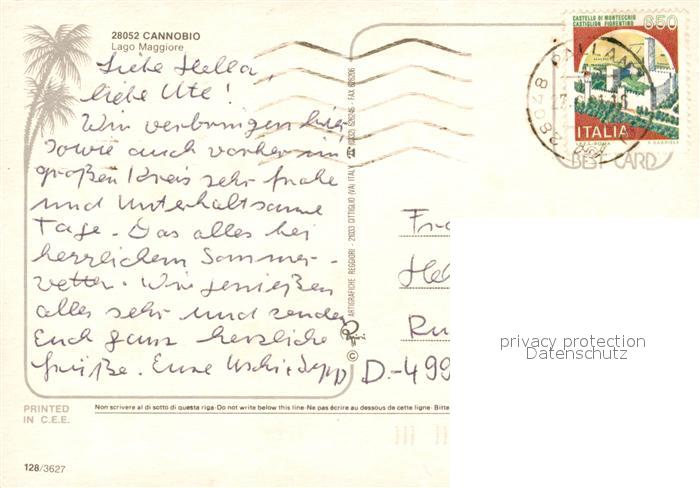 28052 CANNOBIO
Lago Maggiore
Liebe Hella,
liebe Ute!
Wir verbringen hier
sowie auch vorher im
großen Kreis sehr frohe
und unterhaltsame
Tage. Das alles bei
herrlichem Sommer-
wetter. Wir genießen
alles sehr und senden
Euch ganz herzliche
Grüße. Eure Uschi
PRINTED
IN C.E.E.
128/3627
Non scrivere al di sotto di questa riga - Do not write below this line - Ne pas écrire au dessous de cette ligne - Bitte
ARTIGRAFICHE REGGIORI - 21033 CITTIGLIO (VA) ITALY
©
CASTELLO DI MONTECCHIO
CASTIGLION FIORENTINO
650
ITALIA
I.P.Z.S. ROMA
28048
BEST CARD
Fr
Hel
Ru
D.-499
privacy protection
Datenschutz